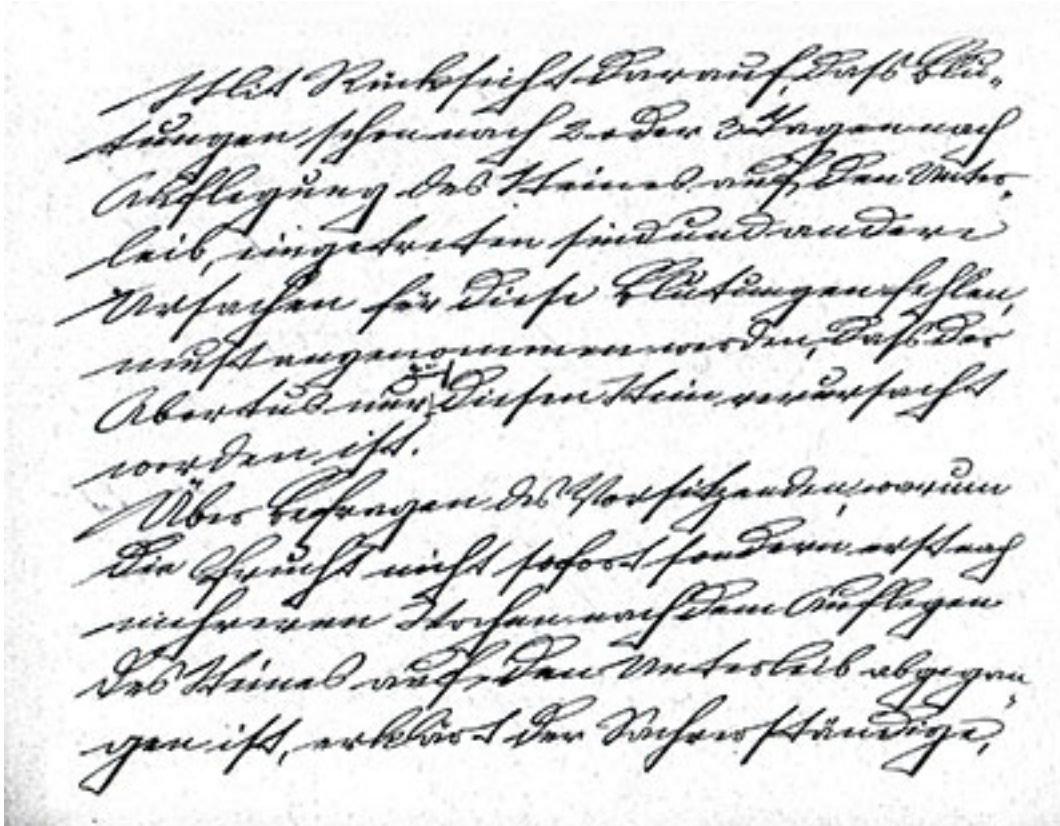 Mit Rücksicht darauf, dass Blu-
tungen schon nach 2 oder 3 Tagen nach
Auflegung des Steines auf den Unter-
leib, eingetreten sind und andere
Ursachen für diese Blutungen fehlen,
muss angenommen werden, dass der
Abortus nur durch diesen Stein verursacht
worden ist.
Über Befragen des Vorsitzenden, warum
die Frucht nicht sofort sondern erst nach
mehreren Wochen nach dem Auflegen
des Steines auf den Unterleib abgegan-
gen ist, erklärt der Sachverständige,